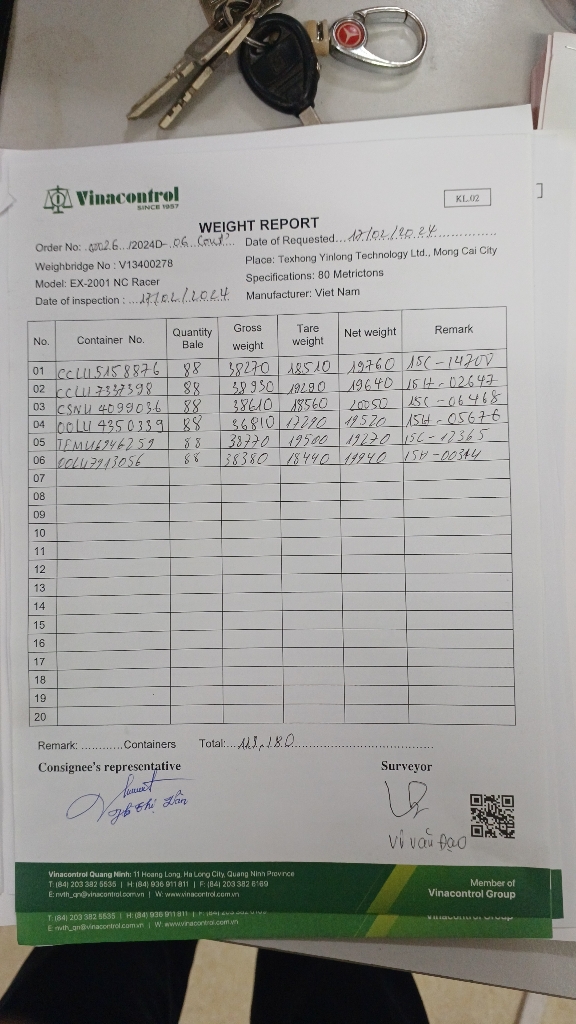 Vinacontrol
SINCE 1957
KL.02
WEIGHT REPORT
Order No: 00026 /2024D- 06 Cont' Date of Requested 17/02/2024
Weighbridge No : V13400278 Place: Texhong Yinlong Technology Ltd., Mong Cai City
Model: EX-2001 NC Racer Specifications: 80 Metrictons
Date of inspection : 17/02/2024 Manufacturer: Viet Nam
No. Container No. Quantity Bale Gross weight Tare weight Net weight Remark
01 CCLU5158876 88 38270 18510 19760 15C-14700
02 CCLU7337398 88 38930 19290 19640 15H-02647
03 CSNU 4099036 88 38610 18560 20050 15C-06468
04 OOLU 4350339 88 36810 17290 19520 15H-05676
05 TEMU6946259 88 38770 19500 19270 15C-12365
06 OOLU7913056 88 38380 18440 19940 15H-00314
07
08
09
10
11
12
13
14
15
16
17
18
19
20
Remark: ............Containers Total: 118,180
Consignee's representative Surveyor
Vi Văn Đạo
Vinacontrol Quang Ninh: 11 Hoang Long, Ha Long City, Quang Ninh Province
T: (84) 203 382 5535 | H: (84) 936 911 811 | F: (84) 203 382 6169
E: nvth_qn@vinacontrol.com.vn | W: www.vinacontrol.com.vn
Member of
Vinacontrol Group
T: (84) 203 382 5535 | H: (84) 936 911 811
E: nvth_qn@vinacontrol.com.vn | W: www.vinacontrol.com.vn
Vinacontrol Group